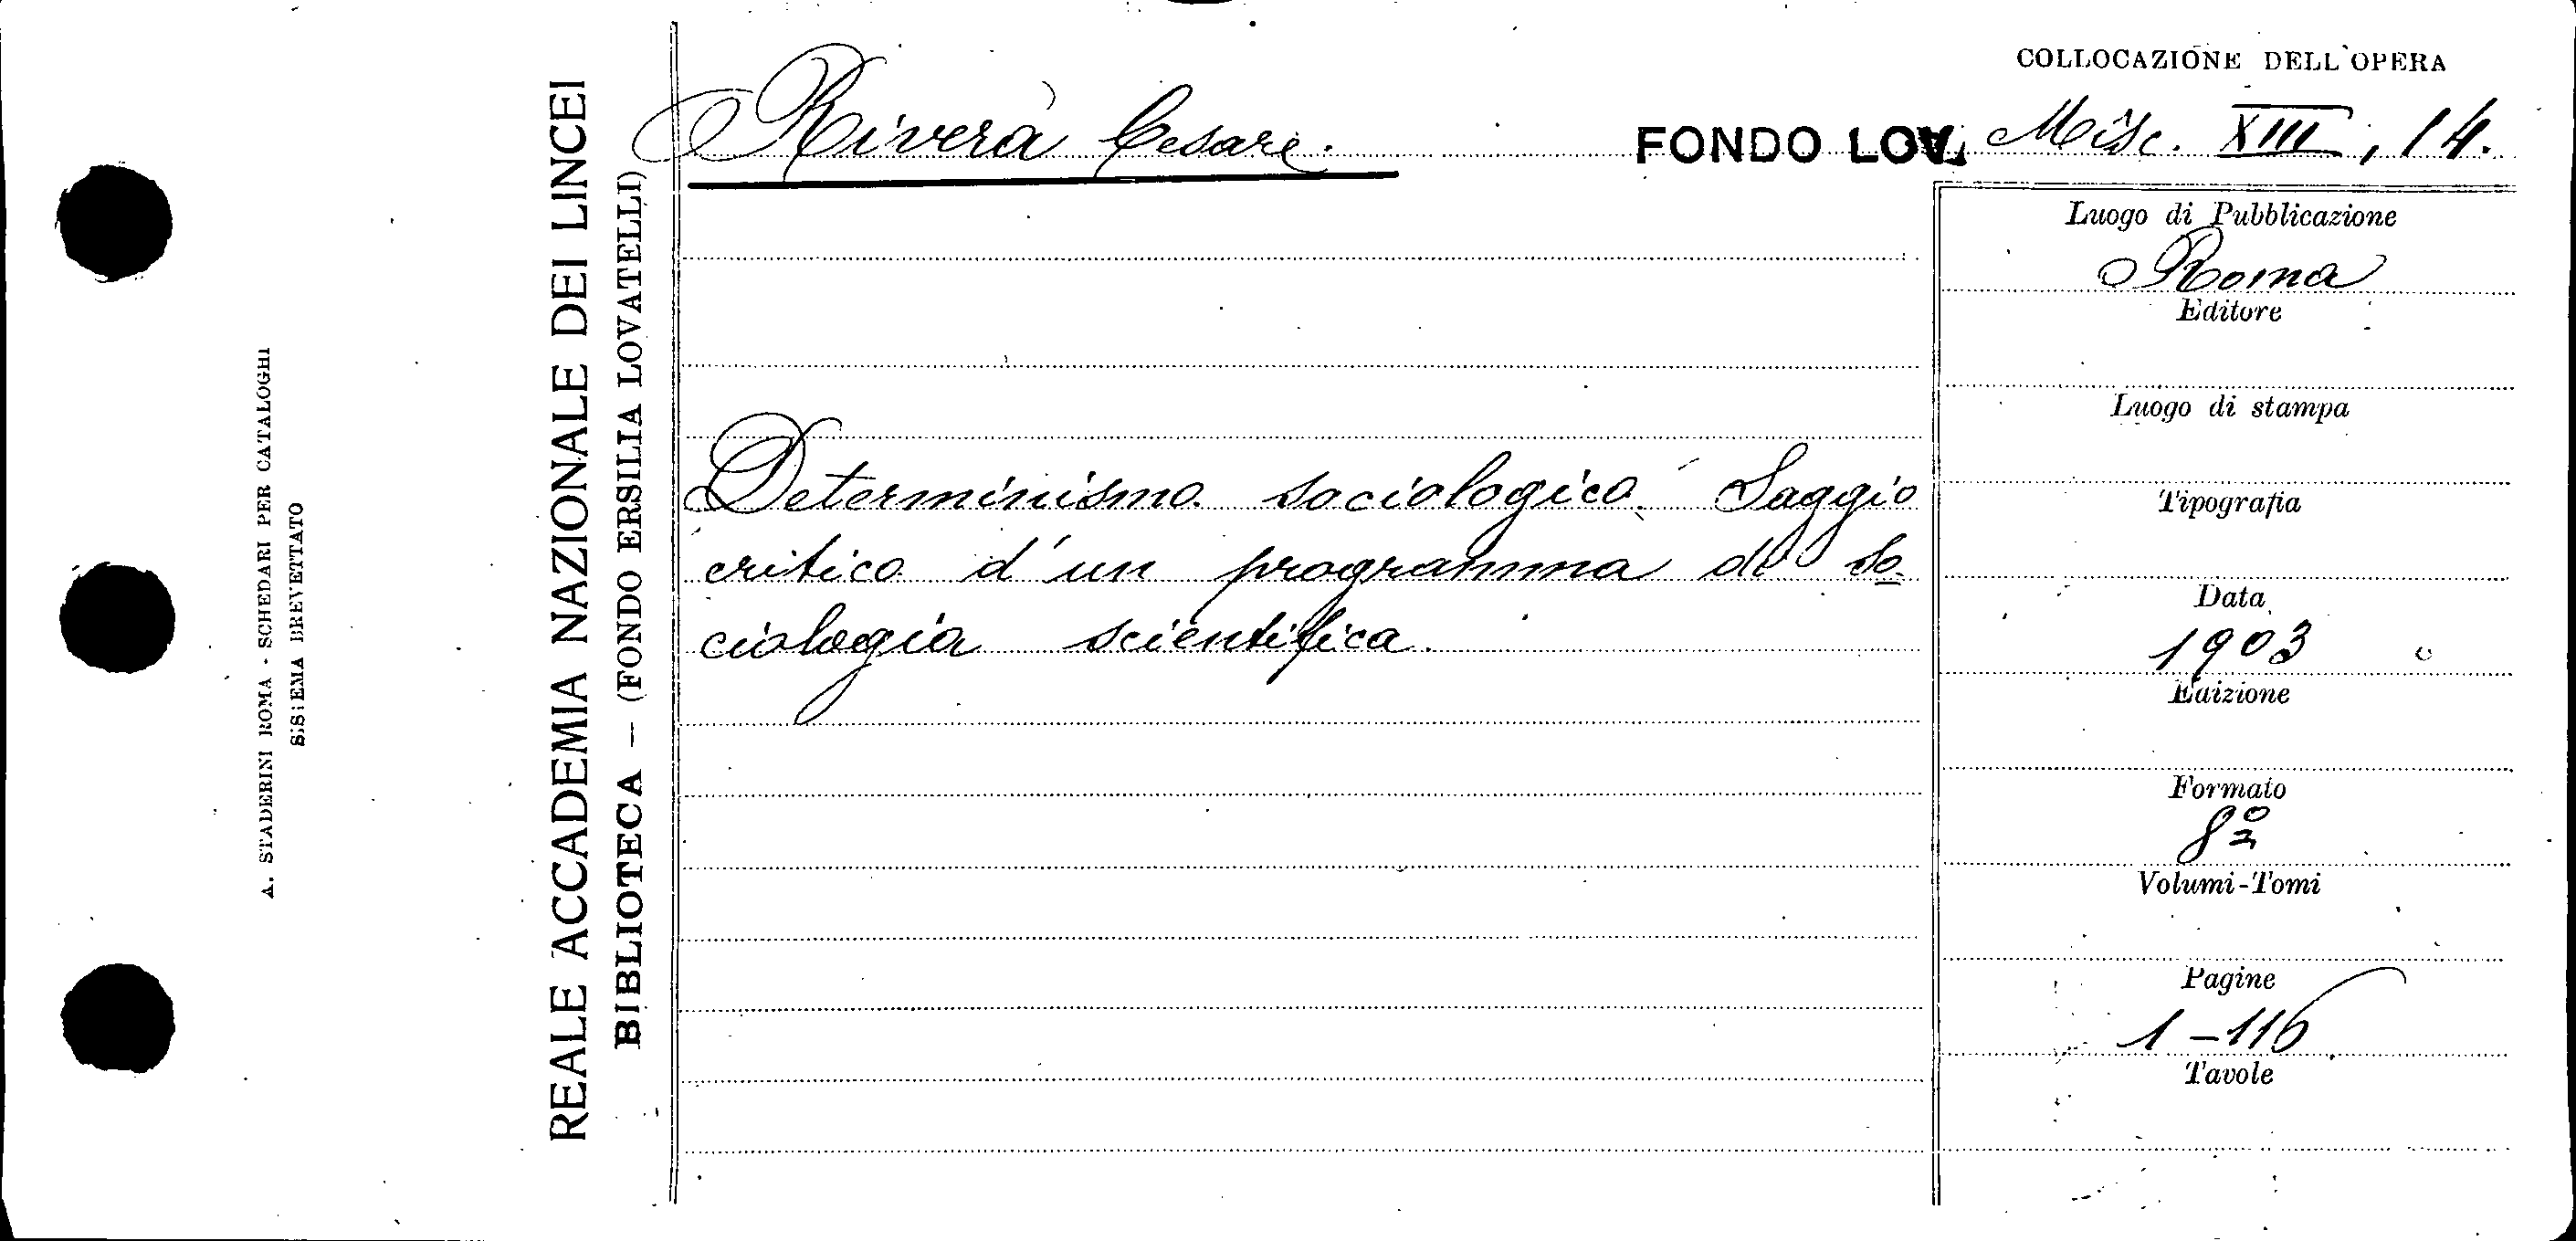 A. STADERINI ROMA - SCHEDARI PER CATALOGHI
SISTEMA BREVETTATO
REALE ACCADEMIA NAZIONALE DEI LINCEI
BIBLIOTECA — (FONDO ERSILIA LOVATELLI)
Rivera Cesare.
COLLOCAZIONE DELL'OPERA
FONDO LOV. Misc. XIII, 14.
Determinismo sociologico. Saggio
critico d'un programma di so
ciologia scientifica.
Luogo di Pubblicazione
Roma
Editore
Luogo di stampa
Tipografia
Data
1903
Edizione
Formato
8º
Volumi-Tomi
Pagine
1-116
Tavole